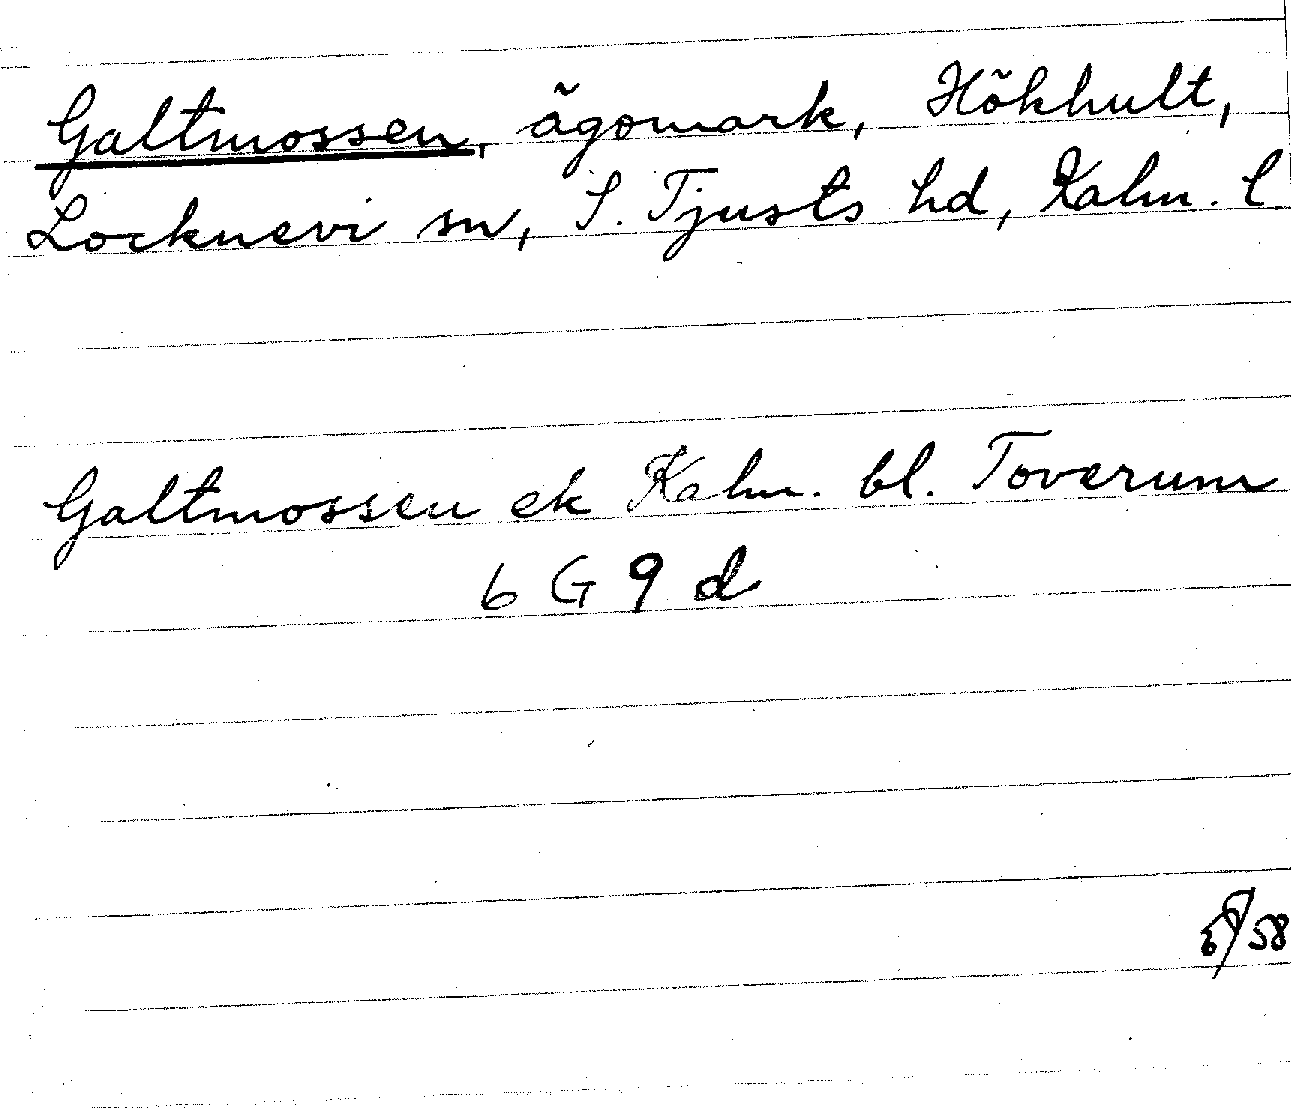 Galtmossen, ägomark, Hökhult,
Locknevi sn, S. Tjusts hd, Kalm. l
Galtmossen ek Kalm. bl. Toverum
6 G 9 d
58